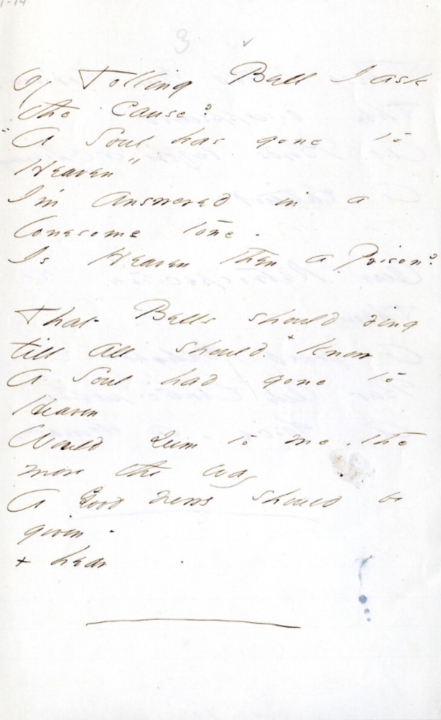 3
Of Tolling Bell I ask
the cause?
"A Soul has gone to
Heaven"
I'm answered in a
lonesome tone.
Is Heaven then a Prison?
That Bells should ring
till all should + know
A Soul had gone to
Heaven
Would seem to me the
more the way
A Good News should be
given.
+ hear